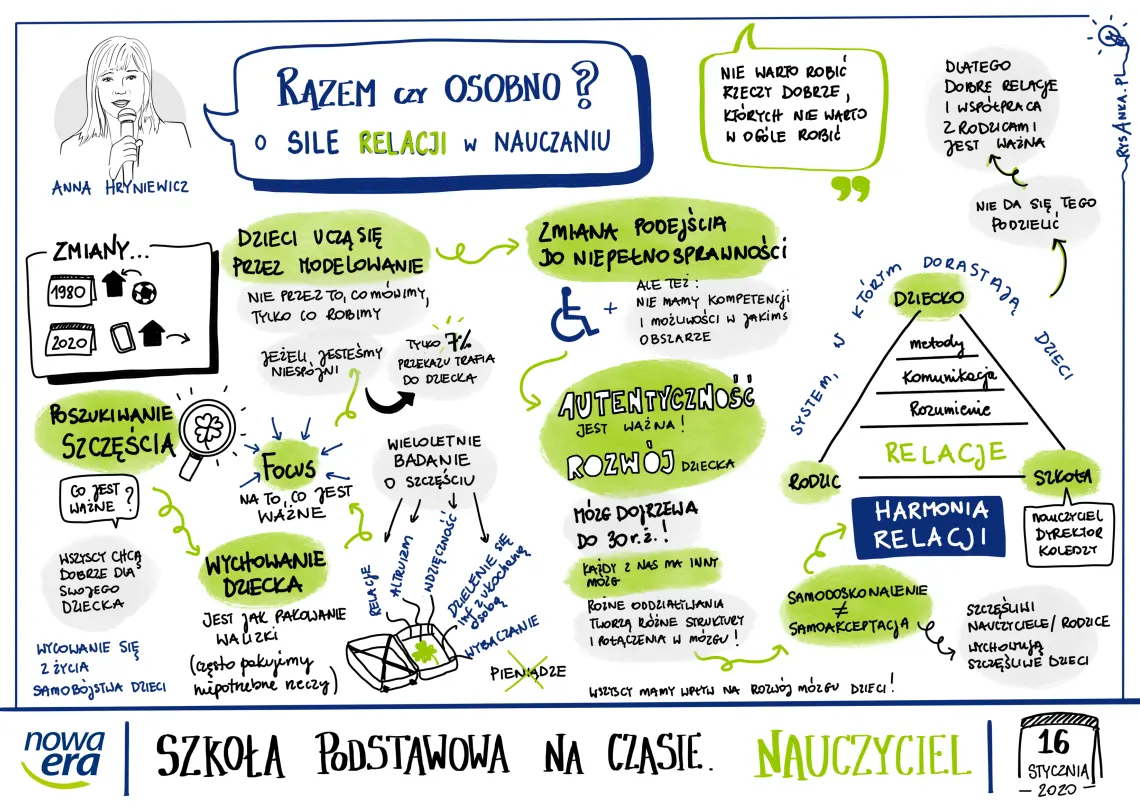 RAZEM czy OSOBNO?
O SILE RELACJI w NAUCZANIU
ANNA HRYNIEWICZ
NIE WARTO ROBIĆ
RZECZY DOBRZE,
KTÓRYCH NIE WARTO
W OGÓLE ROBIĆ
DLATEGO
DOBRE RELACJE
I WSPÓŁPRACA
Z RODZICAMI
JEST WAŻNA
RYSANKA.PL
NIE DA SIĘ TEGO
PODZIELIĆ
ZMIANY...
1980
2020
DZIECI UCZĄ SIĘ
PRZEZ MODELOWANIE
NIE PRZEZ TO, CO MÓWIMY,
TYLKO CO ROBIMY
JEŻELI JESTEŚMY
NIESPÓJNI
TYLKO 7%
PRZEKAZU TRAFIA
DO DZIECKA
ZMIANA PODEJŚCIA
DO NIEPEŁNOSPRAWNOŚCI
+
ALE TEŻ:
NIE MAMY KOMPETENCJI
I MOŻLIWOŚCI W JAKIMŚ
OBSZARZE
POSZUKIWANIE
SZCZĘŚCIA
CO JEST
WAŻNE?
WSZYSCY CHCĄ
DOBRZE DLA
SWOJEGO
DZIECKA
WYCOWANIE SIĘ
Z ŻYCIA
SAMOBÓJSTWA DZIECI
FOCUS
NA TO, CO JEST
WAŻNE
WYCHOWANIE
DZIECKA
JEST JAK PAKOWANIE
WALIZKI
(często pakujemy
niepotrzebne rzeczy)
WIELOLETNIE
BADANIE
O SZCZĘŚCIU
RELACJE
ALTRUIZM
WDZIĘCZNOŚĆ
DZIELENIE SIĘ
INF Z UKOCHANĄ
OSOBĄ
WYBACZANIE
PIENIĄDZE
AUTENTYCZNOŚĆ
JEST WAŻNA!
ROZWÓJ DZIECKA
MÓZG DOJRZEWA
DO 30 r.ż.!
KAŻDY Z NAS MA INNY
MÓZG
RÓŻNE ODDZIAŁYWANIA
TWORZĄ RÓŻNE STRUKTURY
I POŁĄCZENIA W MÓZGU!
WSZYSCY MAMY WPŁYW NA ROZWÓJ MÓZGU DZIECI!
SYSTEM, W KTÓRYM DORASTAJĄ DZIECI
DZIECKO
metody
Komunikacja
Rozumienie
RELACJE
RODZIC
SZKOŁA
NAUCZYCIEL
DYREKTOR
KOLEDZY
HARMONIA
RELACJI
SAMODOSKONALENIE
≠
SAMOAKCEPTACJA
SZCZĘŚLIWI
NAUCZYCIELE/RODZICE
WYCHOWUJĄ
SZCZĘŚLIWE DZIECI
nowa
era
SZKOŁA PODSTAWOWA NA CZASIE. NAUCZYCIEL
16
STYCZNIA
— 2020 —